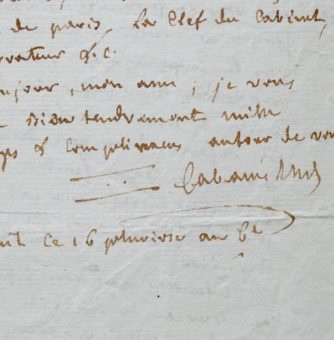 de paris, La Clef du Cabinet,
rvateur &.c.
onjour, mon ami, je vous
bien tendrement mille
& complimens autour de vou
Cabanis
ce 16 pluviose an 6e